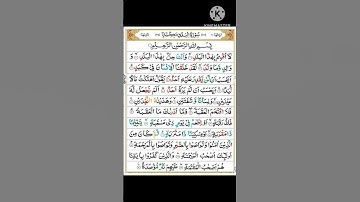 KINEMASTER
سُوْرَةُ الْبَلَدِ مَكِّيَّةٌ
بِسْمِ اللّٰهِ الرَّحْمٰنِ الرَّحِيْمِ
لَاۤ اُقْسِمُ بِهٰذَا الْبَلَدِ ۙ وَاَنْتَ حِلٌّۢ بِهٰذَا الْبَلَدِ ۙ
وَوَالِدٍ وَّمَا وَلَدَ ۙ لَقَدْ خَلَقْنَا الْاِنْسَانَ فِيْ كَبَدٍ ؕ
اَيَحْسَبُ اَنْ لَّنْ يَّقْدِرَ عَلَيْهِ اَحَدٌ ۘ يَقُوْلُ اَهْلَكْتُ مَالًا
لُّبَدًا ؕ اَيَحْسَبُ اَنْ لَّمْ يَرَهٗۤ اَحَدٌ ؕ اَلَمْ نَجْعَلْ لَّهٗ
عَيْنَيْنِ ۙ وَلِسَانًا وَّشَفَتَيْنِ ۙ وَهَدَيْنٰهُ النَّجْدَيْنِ ۚ
فَلَا اقْتَحَمَ الْعَقَبَةَ ۖ وَمَاۤ اَدْرٰىكَ مَا الْعَقَبَةُ ؕ
فَكُّ رَقَبَةٍ ۙ اَوْ اِطْعٰمٌ فِيْ يَوْمٍ ذِيْ مَسْغَبَةٍ ۙ يَّتِيْمًا
ذَا مَقْرَبَةٍ ۙ اَوْ مِسْكِيْنًا ذَا مَتْرَبَةٍ ؕ ثُمَّ كَانَ مِنَ
الَّذِيْنَ اٰمَنُوْا وَتَوَاصَوْا بِالصَّبْرِ وَتَوَاصَوْا بِالْمَرْحَمَةِ ؕ
اُولٰٓئِكَ اَصْحٰبُ الْمَيْمَنَةِ ؕ وَالَّذِيْنَ كَفَرُوْا بِاٰيٰتِنَا
هُمْ اَصْحٰبُ الْمَشْئَمَةِ ؕ عَلَيْهِمْ نَارٌ مُّؤْصَدَةٌ